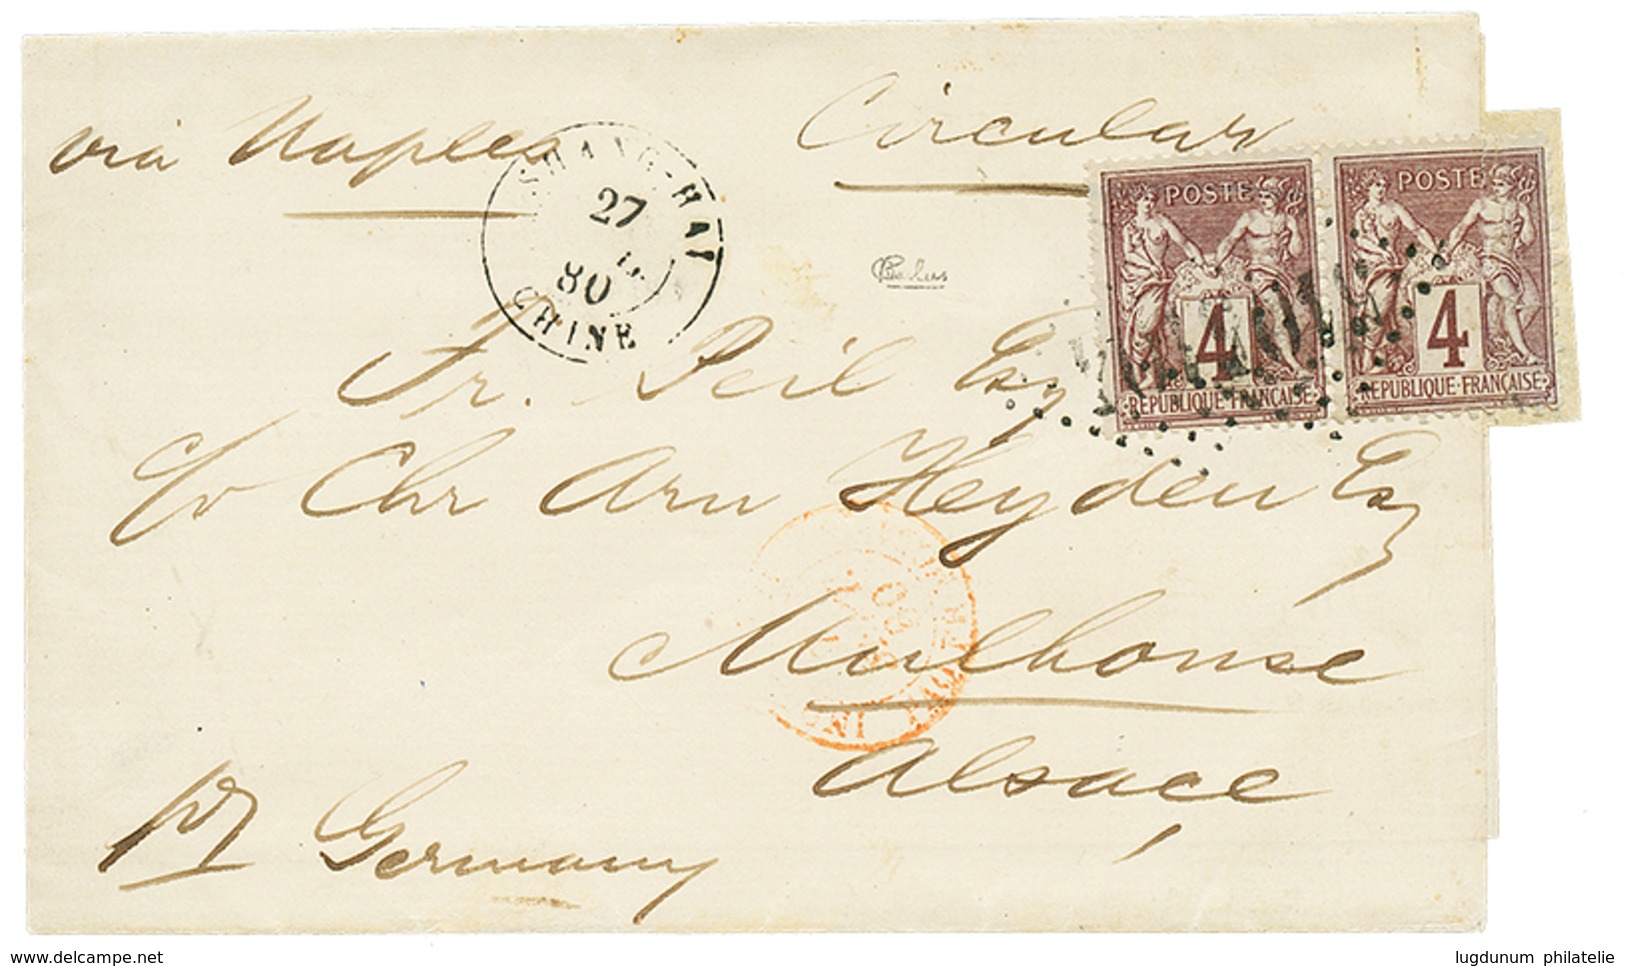 via Naples
Circular
SHANG-HAI
27
80
CHINE
POSTE
4
REPUBLIQUE·FRANÇAISE
POSTE
4
REPUBLIQUE·FRANÇAISE
Fr. Peil Esq
c/o Chr Arn Heyden Esq
Mulhouse
Alsace
pr Germany
www.delcampe.net
lugdunum philatelie